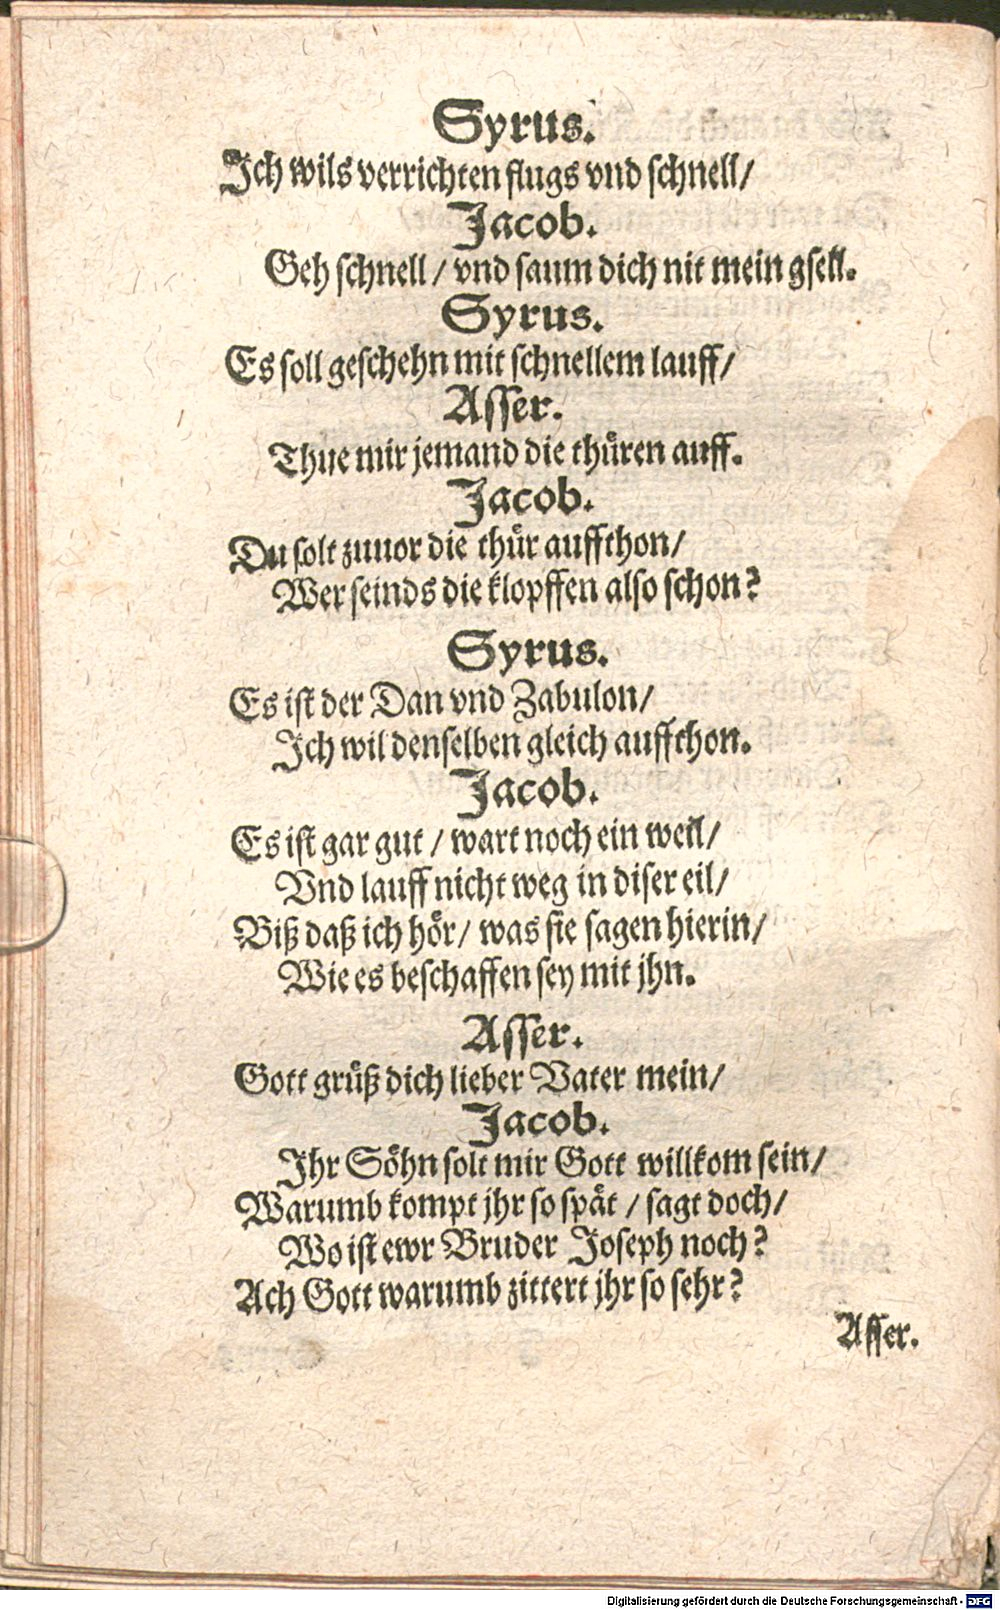 Syrus.
Ich wils verrichten flugs vnd schnell/
Jacob.
Geh schnell / vnd saum dich nit mein gsell.
Syrus.
Es soll geschehn mit schnellem lauff/
Asser.
Thue mir jemand die thüren auff.
Jacob.
Du solt zuuor die thür auffthon/
Wer seinds die klopffen also schon?
Syrus.
Es ist der Dan vnd Zabulon/
Ich wil denselben gleich auffthon.
Jacob.
Es ist gar gut / wart noch ein weil/
Vnd lauff nicht weg in diser eil/
Biß daß ich hör/ was sie sagen hierin/
Wie es beschaffen sey mit jhn.
Asser.
Gott grüß dich lieber Vater mein/
Jacob.
Ihr Söhn solt mir Gott willkom sein/
Warumb kompt jhr so spät / sagt doch/
Wo ist ewr Bruder Joseph noch?
Ach Gott warumb zittert jhr so sehr?
Asser.
Digitalisierung gefördert durch die Deutsche Forschungsgemeinschaft - DFG